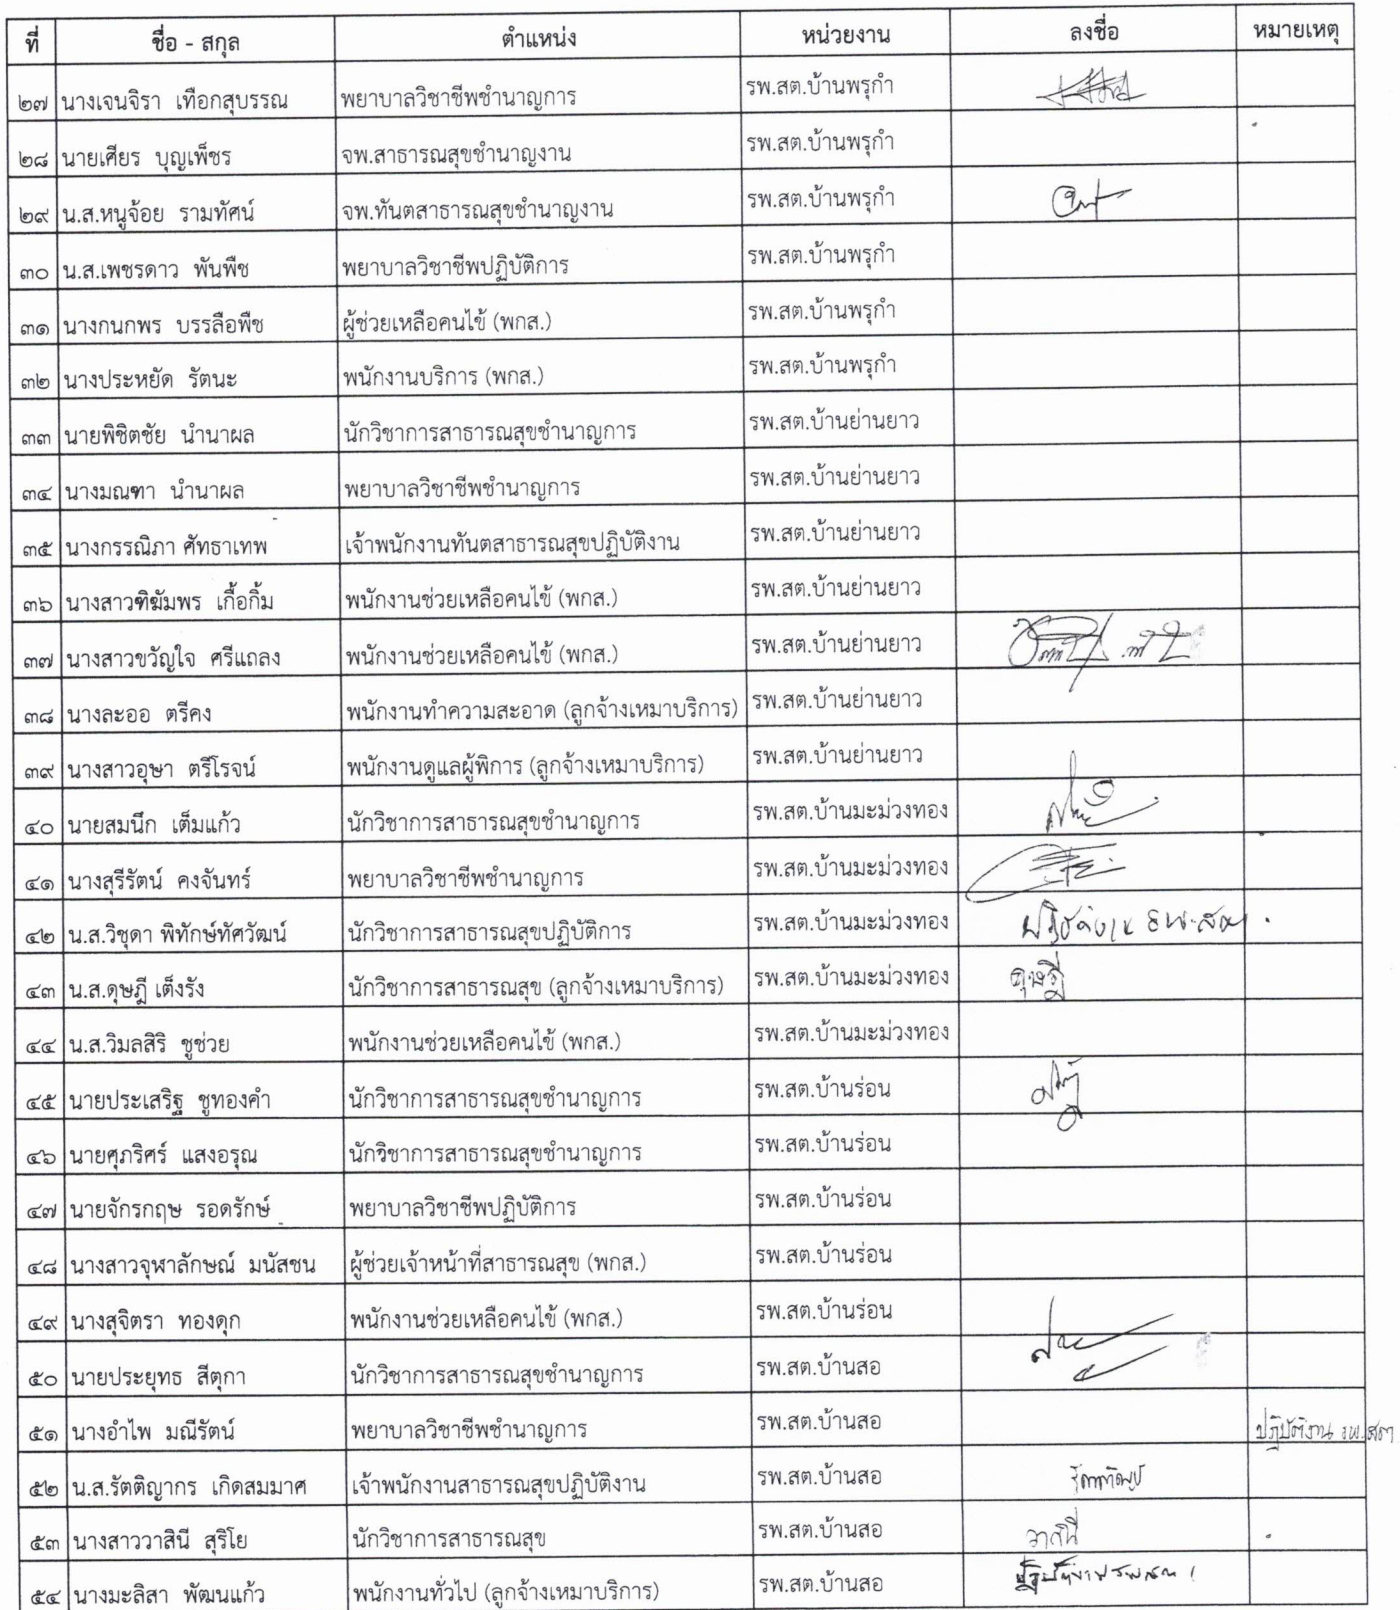 ที่ ชื่อ - สกุล ตำแหน่ง หน่วยงาน ลงชื่อ หมายเหตุ
๒๗ นางเจนจิรา เทือกสุบรรณ พยาบาลวิชาชีพชำนาญการ รพ.สต.บ้านพรุกำ
๒๘ นายเศียร บุญเพ็ชร จพ.สาธารณสุขชำนาญงาน รพ.สต.บ้านพรุกำ
๒๙ น.ส.หนูจ้อย รามทัศน์ จพ.ทันตสาธารณสุขชำนาญงาน รพ.สต.บ้านพรุกำ
๓๐ น.ส.เพชรดาว พันพืช พยาบาลวิชาชีพปฏิบัติการ รพ.สต.บ้านพรุกำ
๓๑ นางกนกพร บรรลือพืช ผู้ช่วยเหลือคนไข้ (พกส.) รพ.สต.บ้านพรุกำ
๓๒ นางประหยัด รัตนะ พนักงานบริการ (พกส.) รพ.สต.บ้านพรุกำ
๓๓ นายพิชิตชัย นำนาผล นักวิชาการสาธารณสุขชำนาญการ รพ.สต.บ้านย่านยาว
๓๔ นางมณฑา นำนาผล พยาบาลวิชาชีพชำนาญการ รพ.สต.บ้านย่านยาว
๓๕ นางกรรณิภา ศัทธาเทพ เจ้าพนักงานทันตสาธารณสุขปฏิบัติงาน รพ.สต.บ้านย่านยาว
๓๖ นางสาวฑิฆัมพร เกื้อกิ้ม พนักงานช่วยเหลือคนไข้ (พกส.) รพ.สต.บ้านย่านยาว
๓๗ นางสาวขวัญใจ ศรีแถลง พนักงานช่วยเหลือคนไข้ (พกส.) รพ.สต.บ้านย่านยาว
๓๘ นางละออ ตรีคง พนักงานทำความสะอาด (ลูกจ้างเหมาบริการ) รพ.สต.บ้านย่านยาว
๓๙ นางสาวอุษา ตรีโรจน์ พนักงานดูแลผู้พิการ (ลูกจ้างเหมาบริการ) รพ.สต.บ้านย่านยาว
๔๐ นายสมนึก เต็มแก้ว นักวิชาการสาธารณสุขชำนาญการ รพ.สต.บ้านมะม่วงทอง
๔๑ นางสุรีรัตน์ คงจันทร์ พยาบาลวิชาชีพชำนาญการ รพ.สต.บ้านมะม่วงทอง
๔๒ น.ส.วิชุดา พิทักษ์ทัศวัฒน์ นักวิชาการสาธารณสุขปฏิบัติการ รพ.สต.บ้านมะม่วงทอง
๔๓ น.ส.ดุษฎี เต็งรัง นักวิชาการสาธารณสุข (ลูกจ้างเหมาบริการ) รพ.สต.บ้านมะม่วงทอง ดุษฎี
๔๔ น.ส.วิมลสิริ ชูช่วย พนักงานช่วยเหลือคนไข้ (พกส.) รพ.สต.บ้านมะม่วงทอง
๔๕ นายประเสริฐ ชูทองคำ นักวิชาการสาธารณสุขชำนาญการ รพ.สต.บ้านร่อน
๔๖ นายศุภริศร์ แสงอรุณ นักวิชาการสาธารณสุขชำนาญการ รพ.สต.บ้านร่อน
๔๗ นายจักรกฤษ รอดรักษ์ พยาบาลวิชาชีพปฏิบัติการ รพ.สต.บ้านร่อน
๔๘ นางสาวจุฬาลักษณ์ มนัสชน ผู้ช่วยเจ้าหน้าที่สาธารณสุข (พกส.) รพ.สต.บ้านร่อน
๔๙ นางสุจิตรา ทองดุก พนักงานช่วยเหลือคนไข้ (พกส.) รพ.สต.บ้านร่อน
๕๐ นายประยุทธ สีตุกา นักวิชาการสาธารณสุขชำนาญการ รพ.สต.บ้านสอ
๕๑ นางอำไพ มณีรัตน์ พยาบาลวิชาชีพชำนาญการ รพ.สต.บ้านสอ ปฏิบัติงาน รพ.สต
๕๒ น.ส.รัตติญากร เกิดสมมาศ เจ้าพนักงานสาธารณสุขปฏิบัติงาน รพ.สต.บ้านสอ
๕๓ นางสาววาสินี สุริโย นักวิชาการสาธารณสุข รพ.สต.บ้านสอ วาสินี
๕๔ นางมะลิสา พัฒนแก้ว พนักงานทั่วไป (ลูกจ้างเหมาบริการ) รพ.สต.บ้านสอ